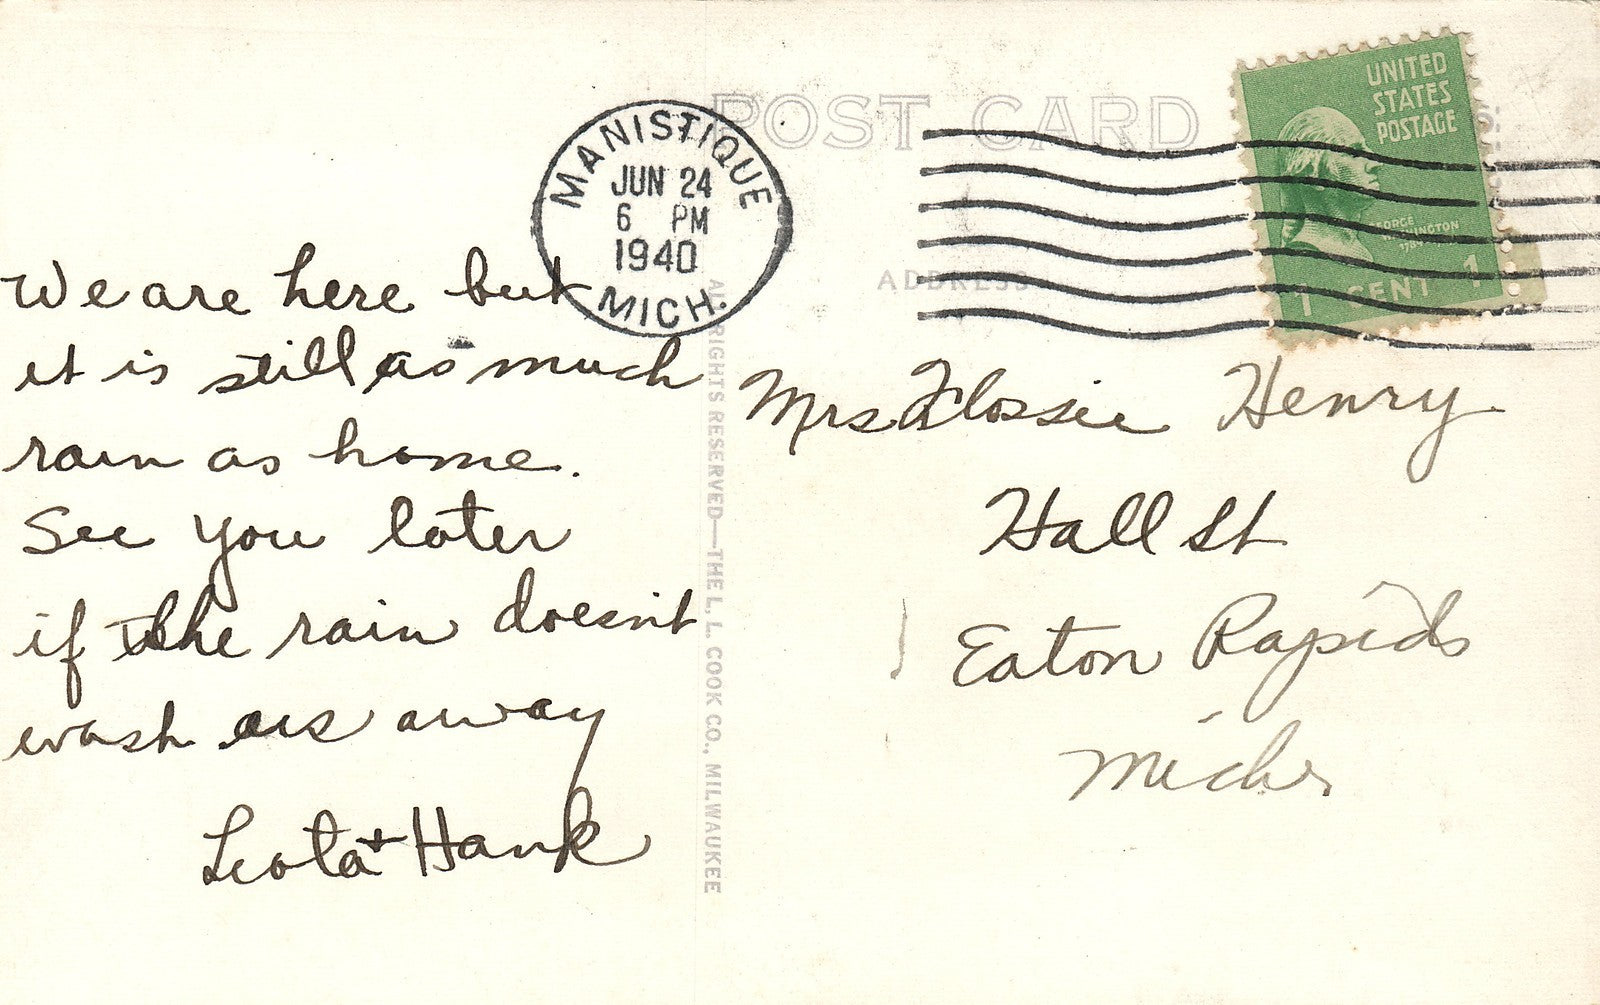 POST CARD
MANISTIQUE
JUN 24
6 PM
1940
MICH.
UNITED
STATES
POSTAGE
GEORGE
WASHINGTON
1 CENT 1
ADDRESS
We are here but
it is still as much
rain as home.
See you later
if the rain doesn't
wash us away
Leota + Hank
ALL RIGHTS RESERVED—THE L. L. COOK CO., MILWAUKEE
Mrs Flossie Henry
Hall St
Eaton Rapids
Mich